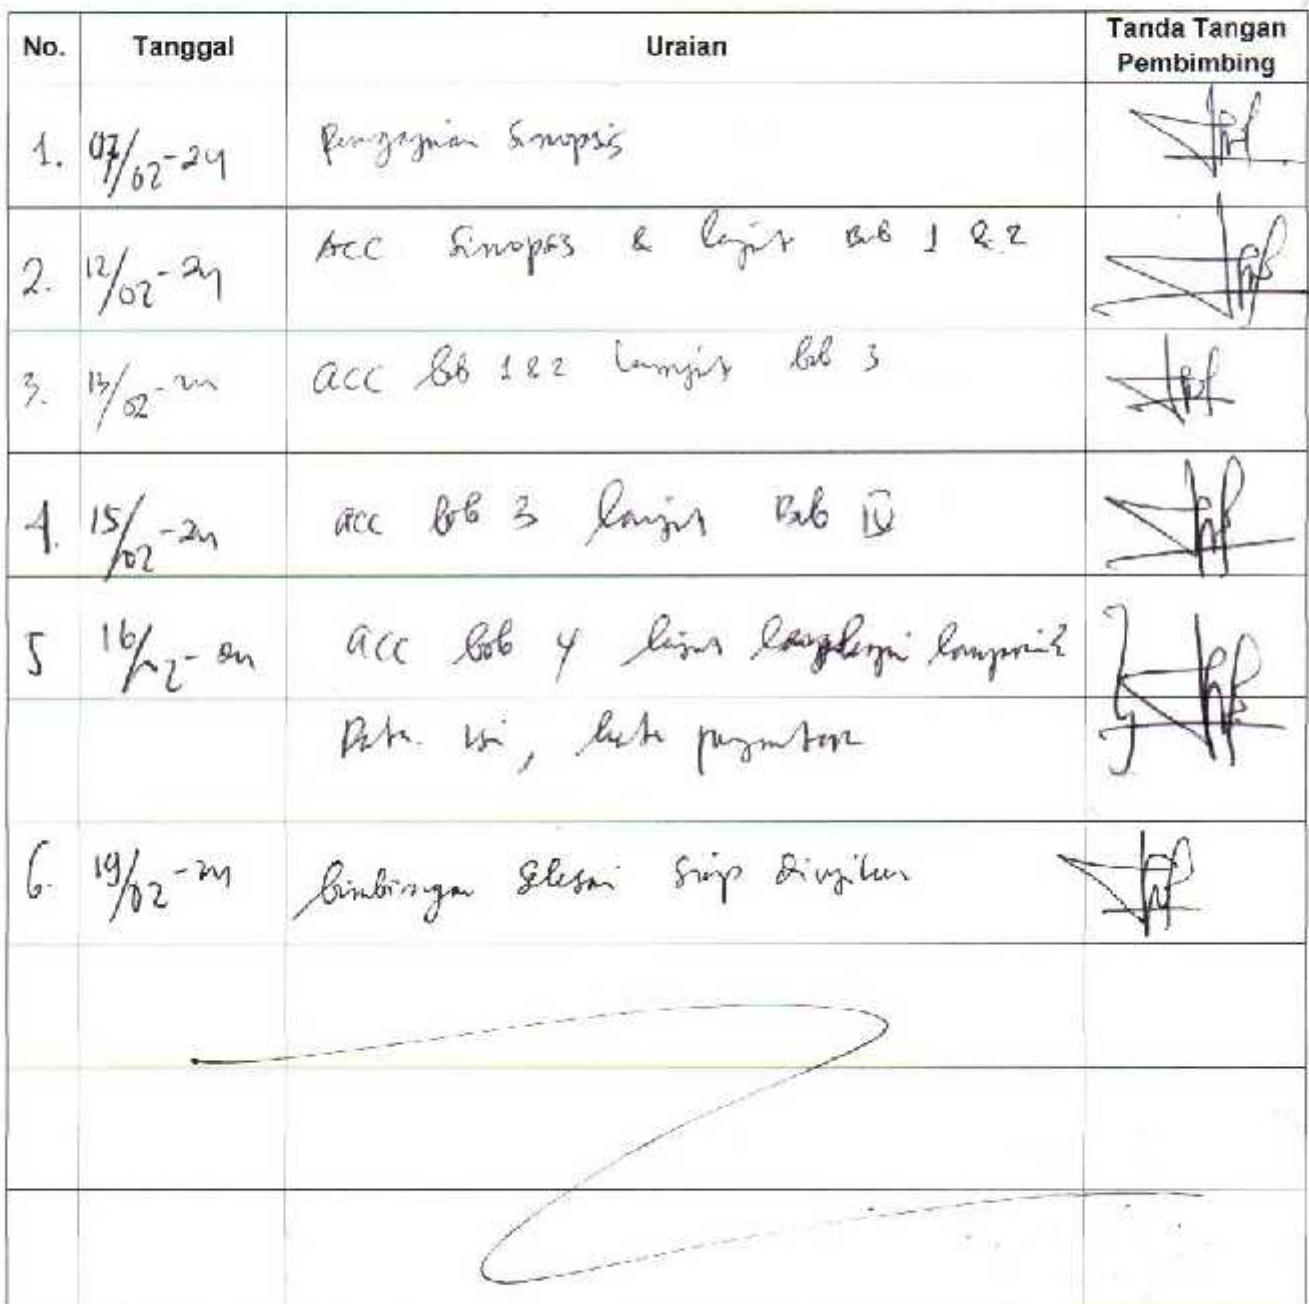 No. Tanggal Uraian Tanda Tangan Pembimbing
1. 07/02-24 Pengajuan Sinopsis
2. 12/02-24 ACC Sinopsis & lanjut Bab 1 & 2
3. 13/02-24 ACC bab 1 & 2 lanjut bab 3
4. 15/02-24 ACC bab 3 lanjut Bab IV
5 16/02-24 ACC bab 4 lanjut lengkapi lampiran2
isi, kata pengantar
6. 19/02-24 bimbingan selesai siap diujikan